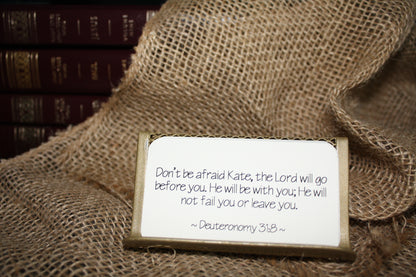 Don't be afraid Kate, the Lord will go
before you. He will be with you; He will
not fail you or leave you.
~ Deuteronomy 31:8 ~